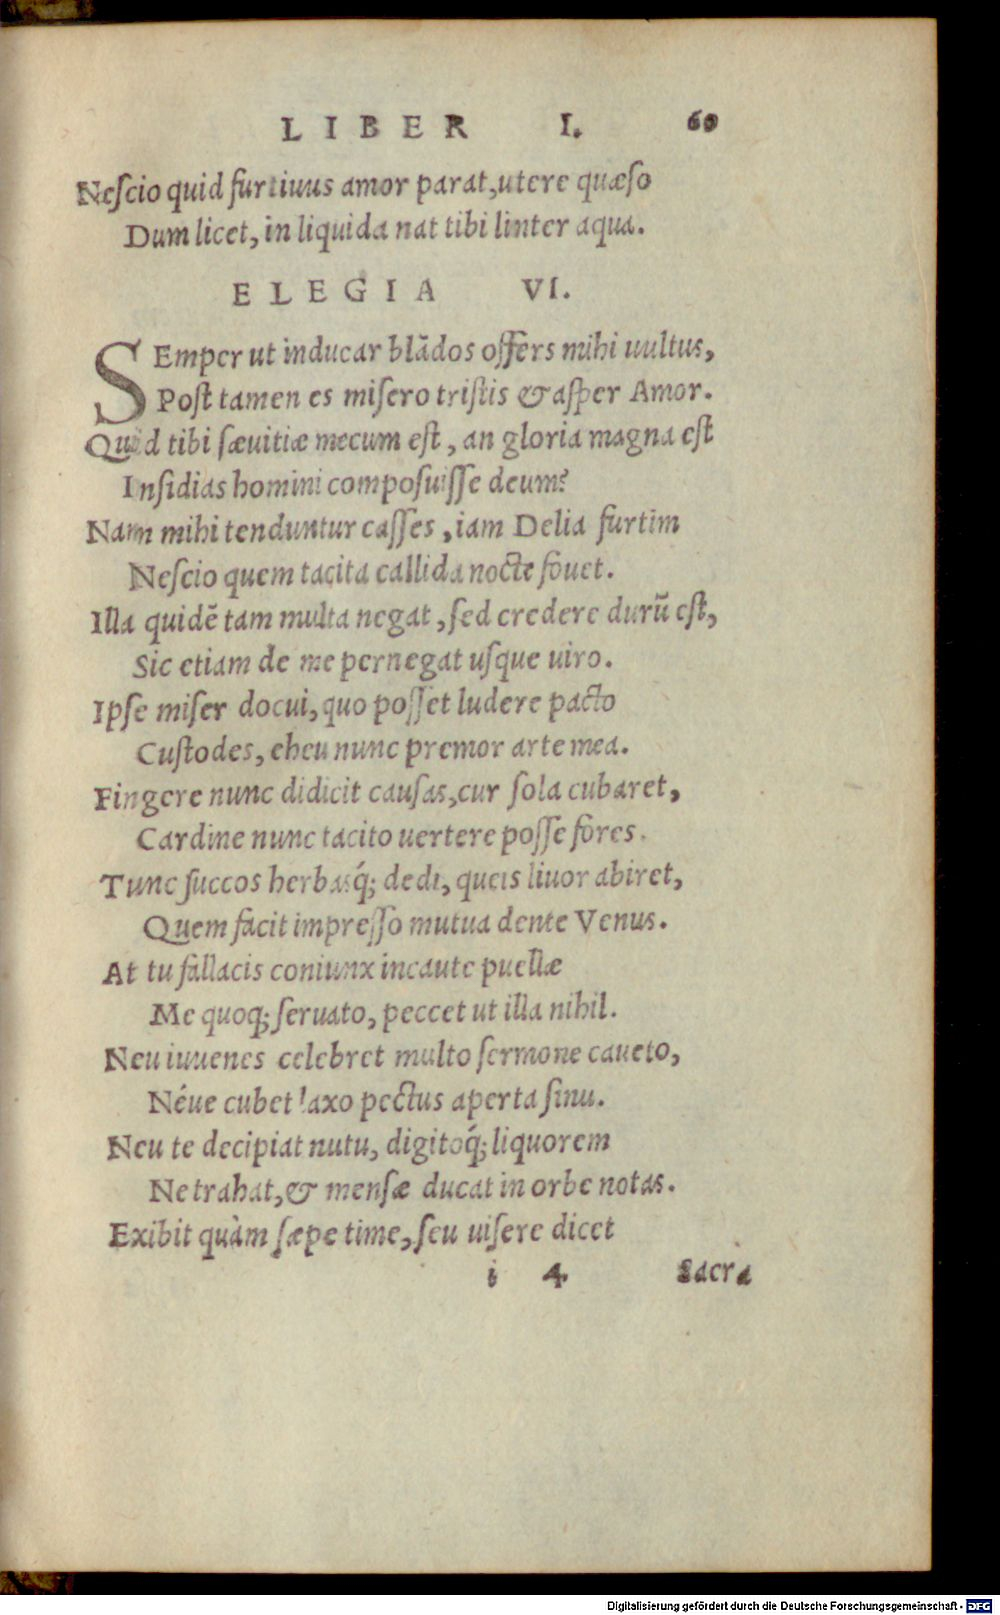 LIBER I. 69
Nescio quid furtiuus amor parat, utere quæso
Dum licet, in liquida nat tibi linter aqua.
ELEGIA VI.
SEmper ut inducar blādos offers mihi uultus,
Post tamen es misero tristis & asper Amor.
Quid tibi sæuitiæ mecum est, an gloria magna est
Insidias homini composuisse deum?
Nam mihi tenduntur casses, iam Delia furtim
Nescio quem tacita callida nocte fouet.
Illa quidē tam multa negat, sed credere durū est,
Sic etiam de me pernegat usque uiro.
Ipse miser docui, quo posset ludere pacto
Custodes, eheu nunc premor arte mea.
Fingere nunc didicit causas, cur sola cubaret,
Cardine nunc tacito uertere posse fores.
Tunc succos herbasq́; dedi, queis liuor abiret,
Quem facit impresso mutua dente Venus.
At tu fallacis coniunx incaute puellæ
Me quoq; seruato, peccet ut illa nihil.
Neu iuuenes celebret multo sermone caueto,
Néue cubet laxo pectus aperta sinu.
Neu te decipiat nutu, digitoq́; liquorem
Ne trahat, & mensæ ducat in orbe notas.
Exibit quàm sæpe time, seu uisere dicet
i 4 Sacra
Digitalisierung gefördert durch die Deutsche Forschungsgemeinschaft - DFG